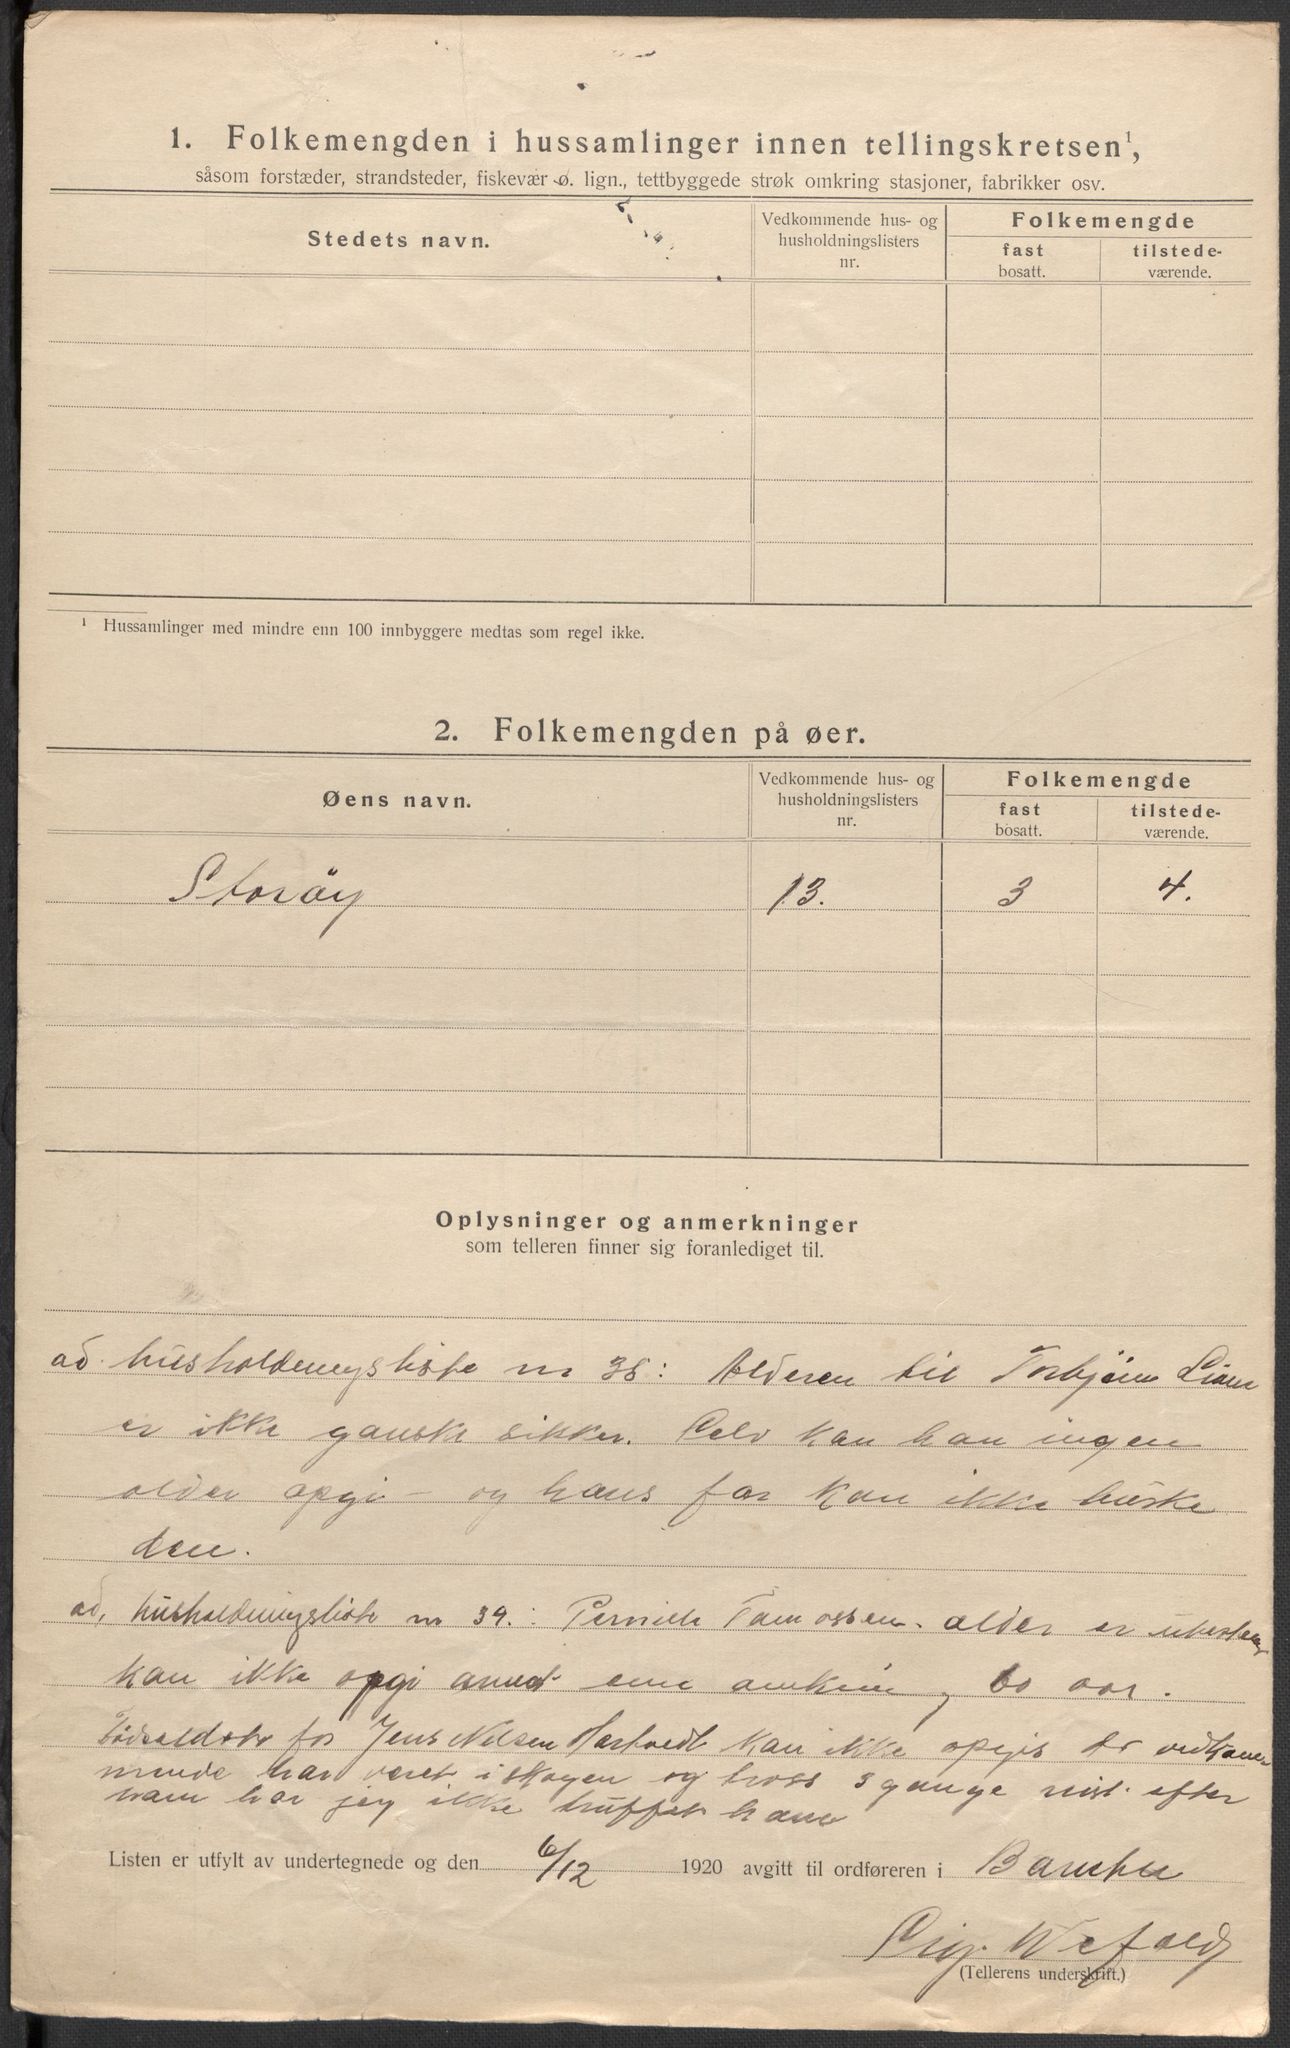 1. Folkemengden i hussamlinger innen tellingskretsen¹,
såsom forstæder, strandsteder, fiskevær o. lign., tettbyggede strøk omkring stasjoner, fabrikker osv.
Stedets navn.
Vedkommende hus- og
husholdningslisters
nr.
Folkemengde
fast
bosatt.
tilstede-
værende.
¹ Hussamlinger med mindre enn 100 innbyggere medtas som regel ikke.
2. Folkemengden på øer.
Øens navn.
Vedkommende hus- og
husholdningslisters
nr.
Folkemengde
fast
bosatt.
tilstede-
værende.
Storöy 13. 3 4.
Oplysninger og anmerkninger
som telleren finner sig foranlediget til.
ad. husholdningsliste nr 38: Alderen til Torbjörn
er ikke ganske sikker. Selv kan han ingen
alder opgi - og hans far kan ikke huske
den.
ad, husholdningsliste nr 39: alder er
kan ikke opgi annet enn omkring 60 aar.
for Jens Nilsen kan ikke opgis da vedkom-
mende har været i skogen og tross 3 gange efter
ham har jeg ikke truffet ham
Listen er utfylt av undertegnede og den 6/12 1920 avgitt til ordføreren i Bamble
(Tellerens underskrift.)